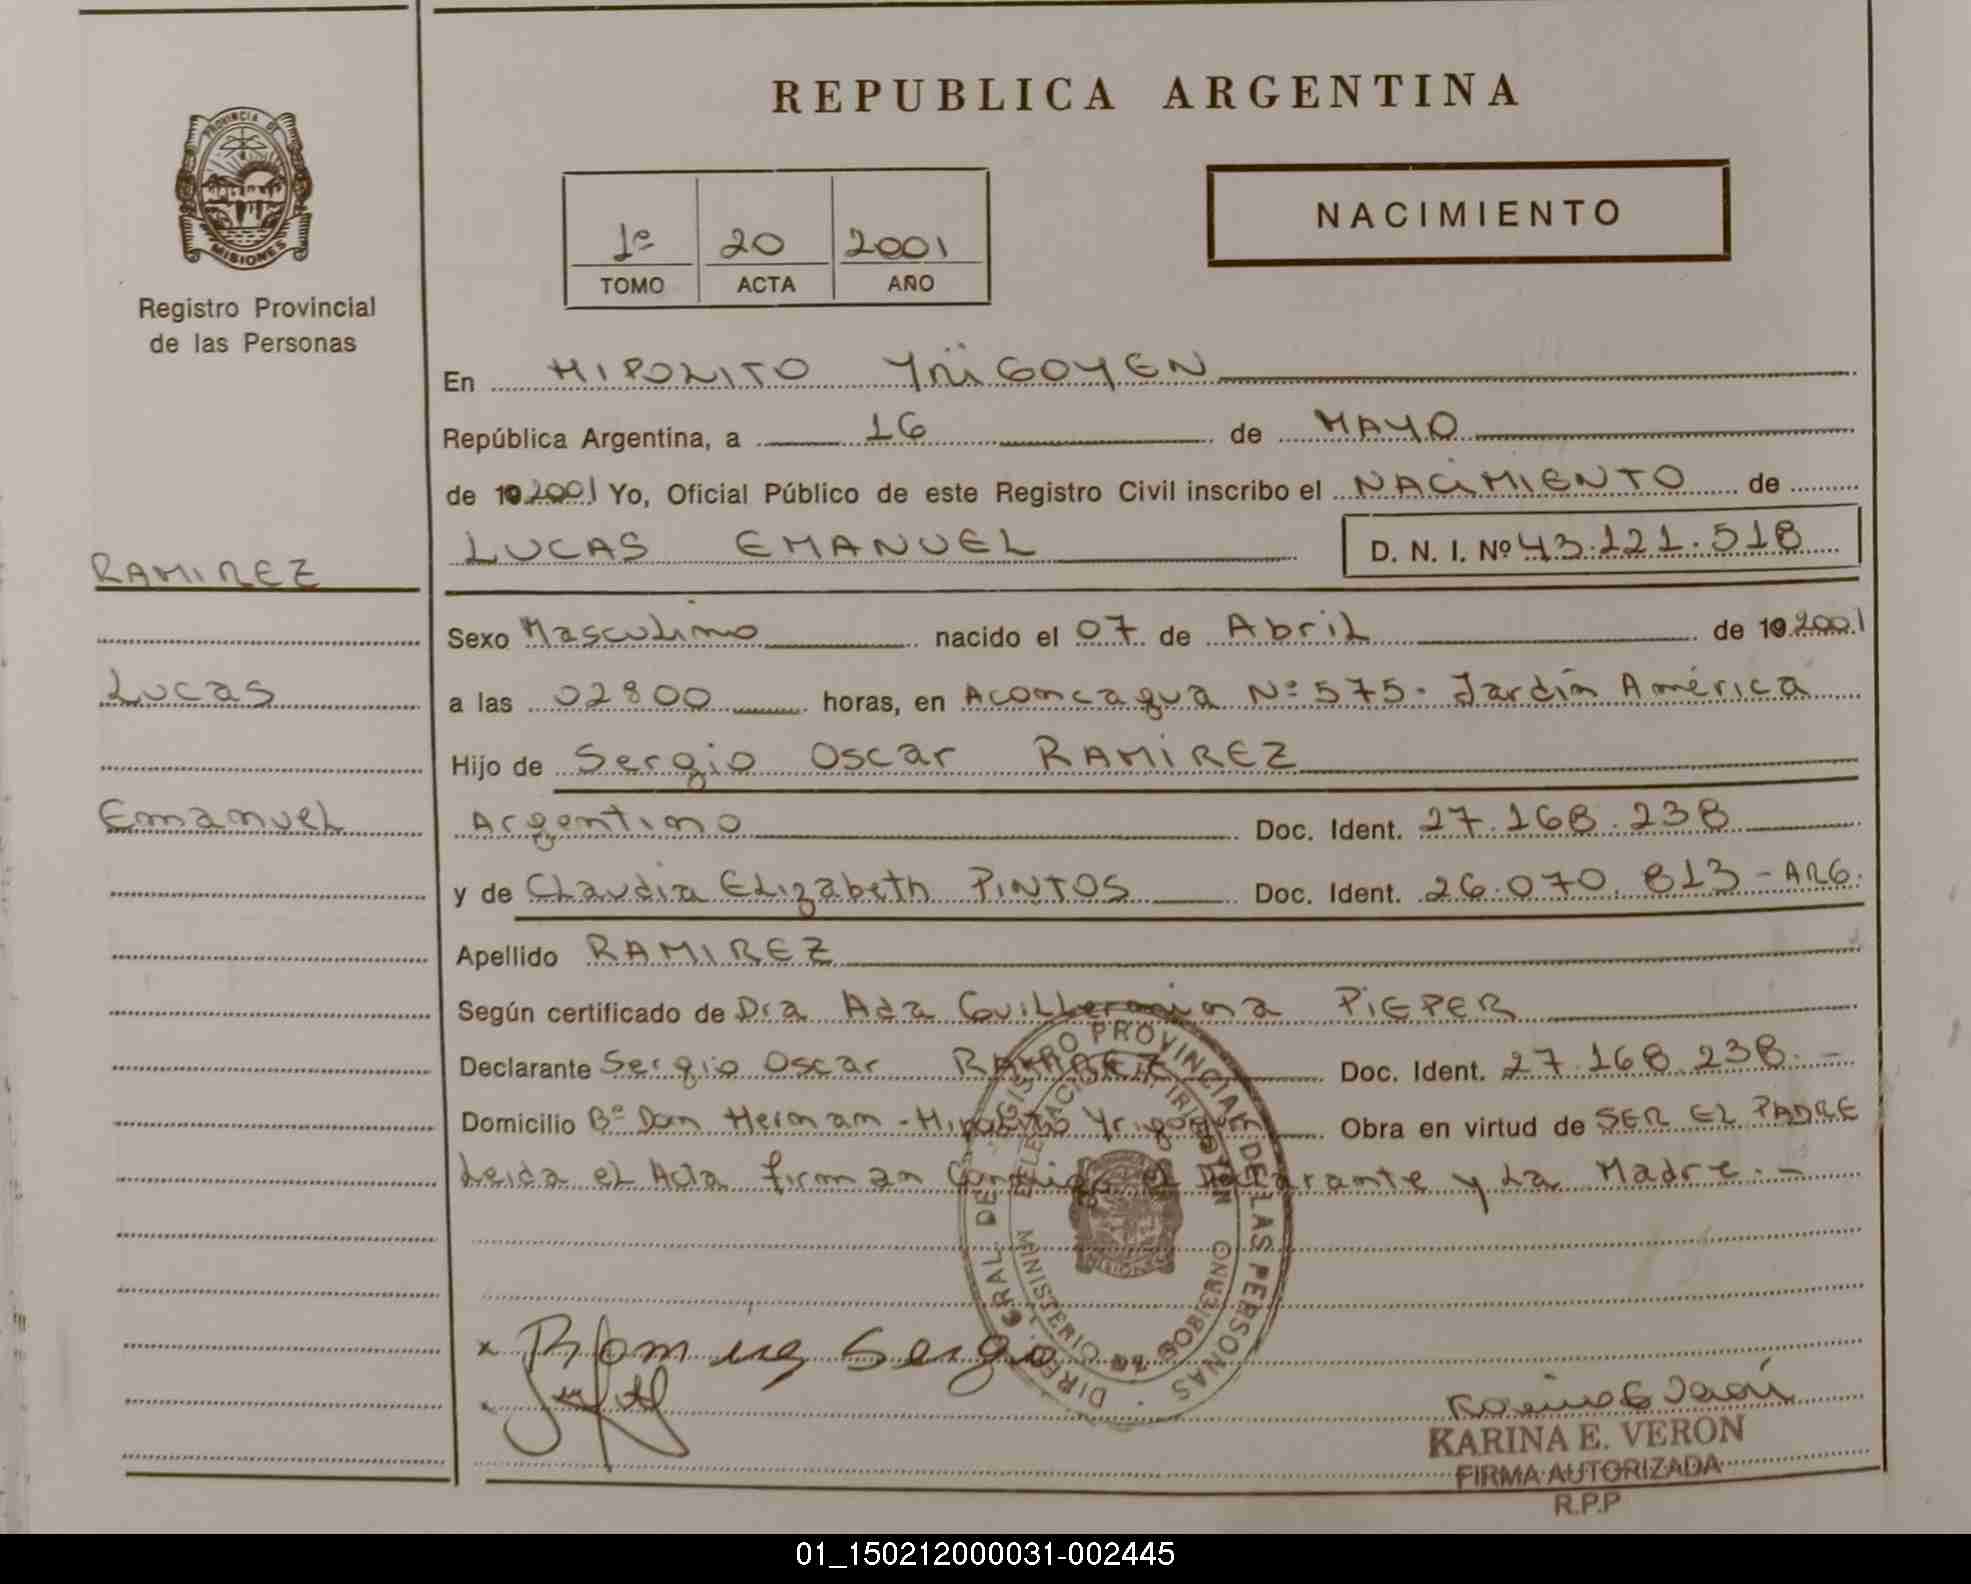 REPUBLICA ARGENTINA
PROVINCIA DE
MISIONES
Registro Provincial
de las Personas
NACIMIENTO
1º 20 2001
TOMO ACTA AÑO
En HIPOLITO YRIGOYEN
República Argentina, a 16 de MAYO
de 19 2001 Yo, Oficial Público de este Registro Civil inscribo el NACIMIENTO de
LUCAS EMANUEL D. N. I. Nº 43.121.518
RAMIREZ
Lucas
Emanuel
Sexo Masculino nacido el 07 de Abril de 19 2001
a las 02:00 horas, en Aconcagua Nº 575. Jardín América
Hijo de Sergio Oscar RAMIREZ
Argentino Doc. Ident. 27.168.238
y de Claudia Elizabeth PINTOS Doc. Ident. 26.070.813 - ARG.
Apellido RAMIREZ
Según certificado de Dra Ada Guillermina PIEPER
Declarante Sergio Oscar RAMIREZ Doc. Ident. 27.168.238.-
Domicilio Bº Don Hernan - Hipolito Yrigoyen Obra en virtud de SER EL PADRE
Leida el Acta firman Conmigo el Declarante y La Madre.-
DIREC. GRAL. DE REGISTRO PROVINCIAL DE LAS PERSONAS
MINISTERIO DE GOBIERNO
MISIONES
x Ramirez Sergio
KARINA E. VERON
FIRMA AUTORIZADA
R.P.P
01_150212000031-002445